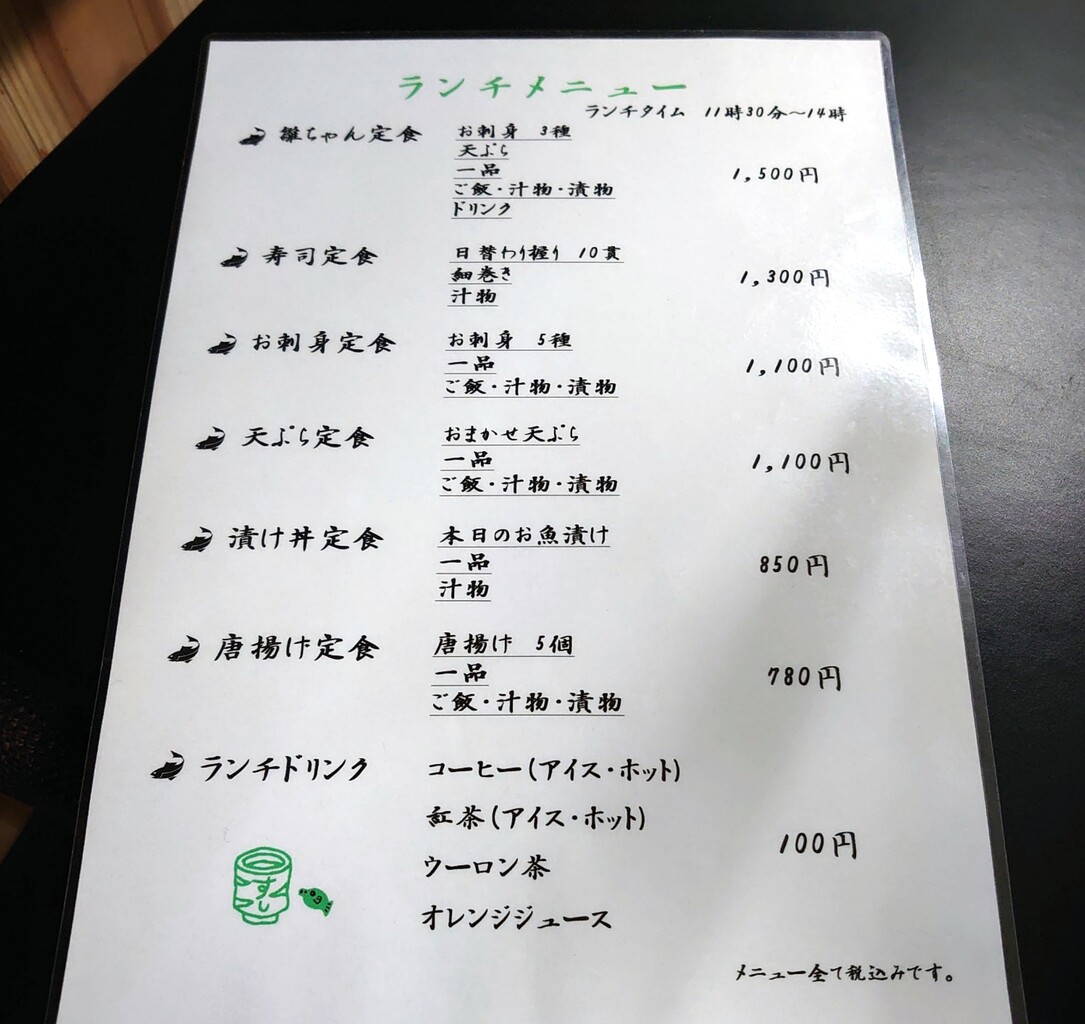 ランチメニュー
ランチタイム 11時30分～14時
雛ちゃん定食 お刺身 3種
天ぷら
一品
1,500円
ご飯・汁物・漬物
ドリンク
寿司定食 日替わり握り 10貫
細巻き
1,300円
汁物
お刺身定食 お刺身 5種
一品
1,100円
ご飯・汁物・漬物
天ぷら定食 おまかせ天ぷら
一品
1,100円
ご飯・汁物・漬物
漬け丼定食 本日のお魚漬け
一品
850円
汁物
唐揚げ定食 唐揚げ 5個
一品
780円
ご飯・汁物・漬物
ランチドリンク コーヒー(アイス・ホット)
紅茶(アイス・ホット)
100円
ウーロン茶
オレンジジュース
すし
メニュー全て税込みです。